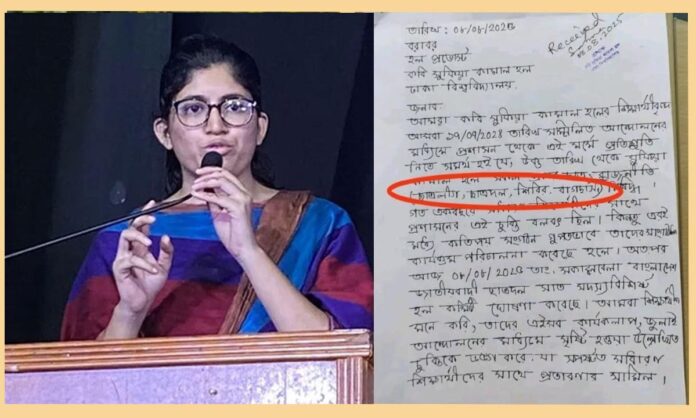 তারিখ : ০৮/০৮/২০২৫
Received
08.08.2025
বরাবর
হল প্রভোস্ট
কবি সুফিয়া কামাল হল
ঢাকা বিশ্ববিদ্যালয়.
জনাব,
আমরা কবি সুফিয়া কামাল হলের শিক্ষার্থীবৃন্দ
আমরা ১৭/০৭/২০২৪ তারিখ সম্মিলিত আন্দোলনের
মাধ্যমে প্রশাসন থেকে এই মর্মে প্রতিশ্রুতি
নিতে সমর্থ হই যে, উক্ত তারিখ থেকে সুফিয়া
কামাল হলে রাজনীতি
(ছাত্রলীগ, ছাত্রদল, শিবির, বাগছাস) নিষিদ্ধ।
গত একবছরে সাথে
প্রশাসনের এই চুক্তি বলবৎ ছিল। কিন্তু এরই
মধ্যে কতিপয় সংগঠন গুপ্তভাবে তাদের
কার্যক্রম পরিচালনা করেছে হলে। অতঃপর
আজ ০৮/০৮/২০২৫ তাং সকালবেলা বাংলাদেশ
জাতীয়তাবাদী ছাত্রদল সাত সদস্যবিশিষ্ট
হল কমিটি ঘোষণা করেছে। আমরা শিক্ষার্থীরা
মনে করি, তাদের এইসব কার্যকলাপ, জুলাই
আন্দোলনের মাধ্যমে সৃষ্ট হওয়া উল্লেখিত
চুক্তিকে ভঙ্গ করে. যা সাধারণ
শিক্ষার্থীদের সাথে প্রতারণার সামিল।